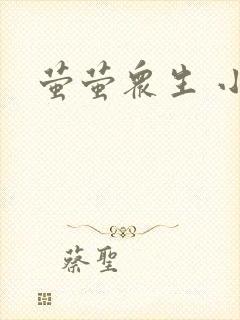 萤萤众生 小
蔡聖